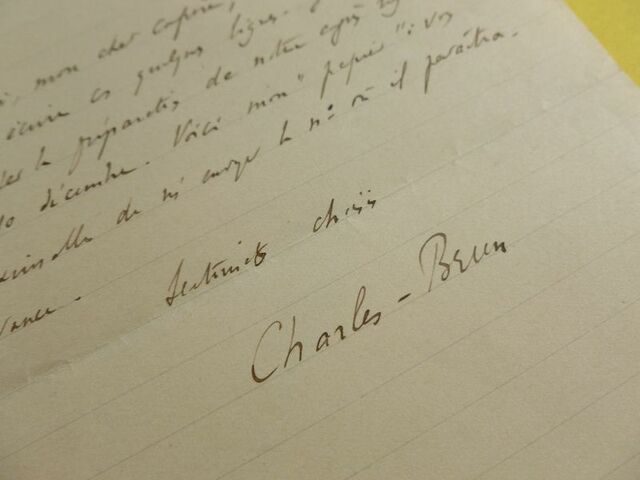 mon cher confrère,
écrire ces quelques lignes.
la préparation de notre
décembre. Voici mon "papier" : vos
de m'envoyer le n° où il paraîtra.
Sentiments choisis
Charles-Brun